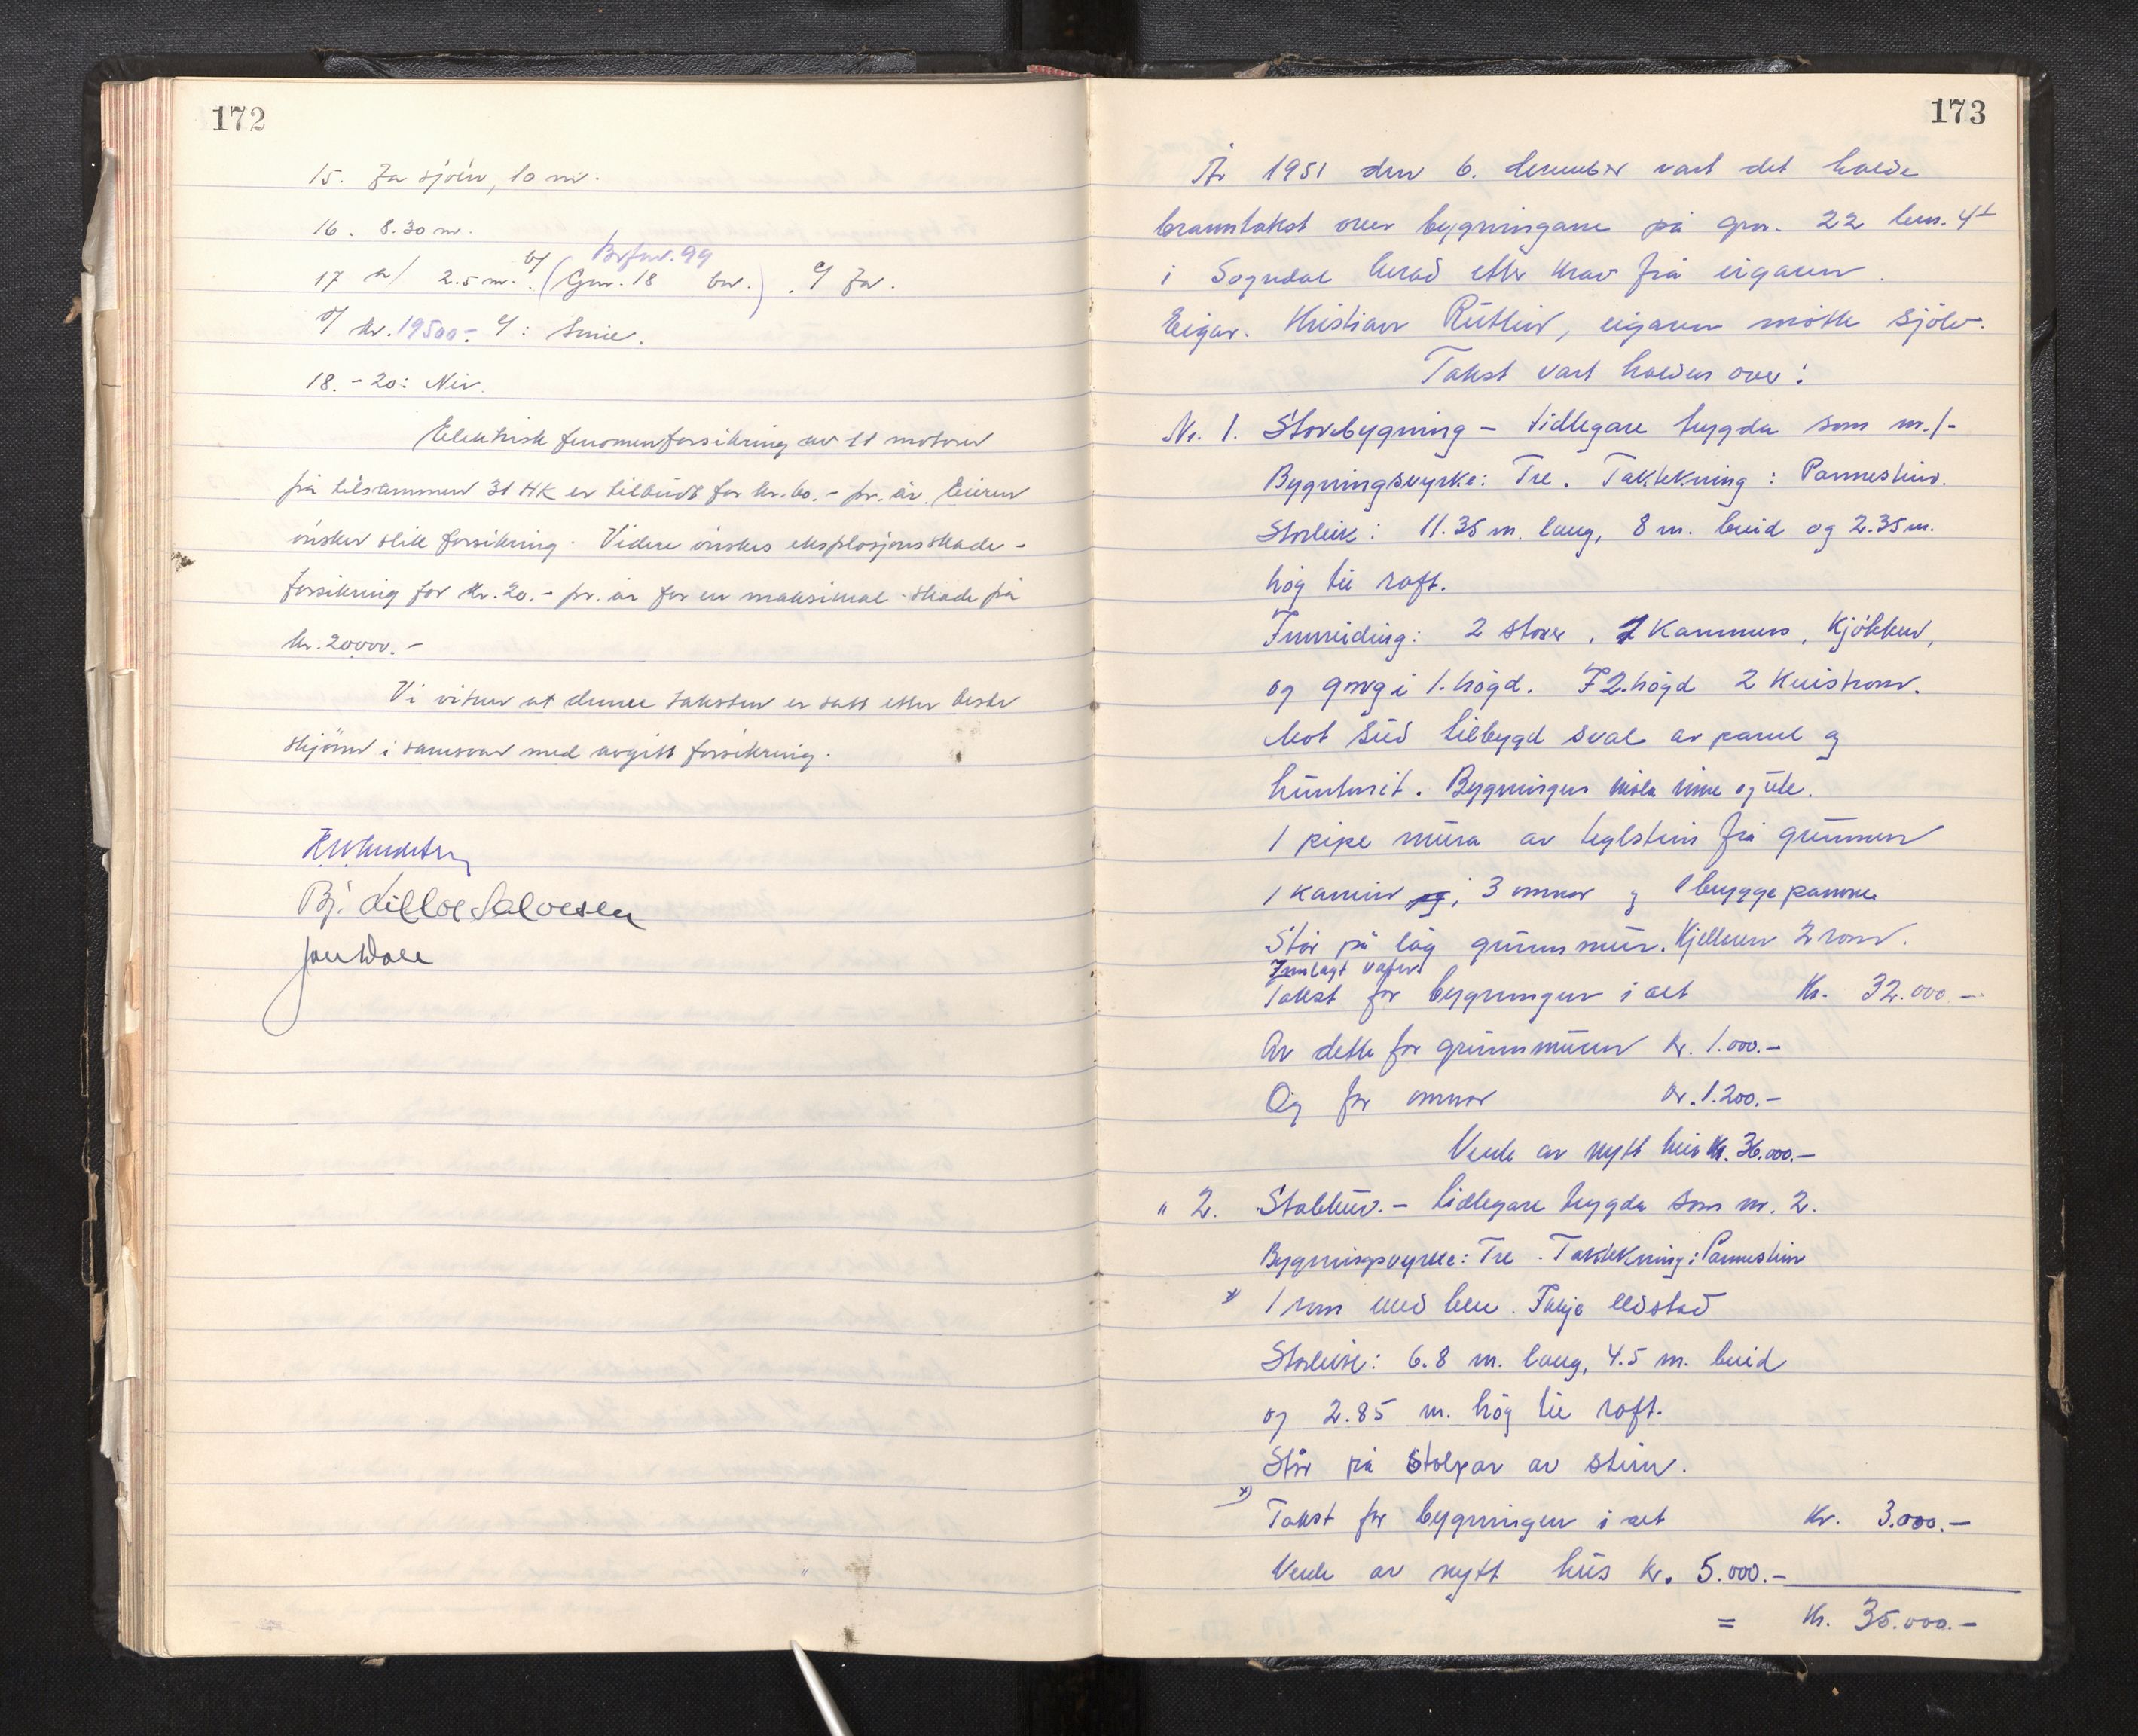 172
15. Ja sjøen, 10 m.
16. 8.30 m.
Brfnr. 99
17 a/ 2.5 m. b/ (Gnr. 18 bnr. ). c/ Ja.
d/ kr. 19500.- e/: Smie.
18. - 20: Nei.
Elektrisk fenomenforsikring av 11 motorer
på tilsammen 31 HK er tilbudt for kr. 60.- pr. år. Eieren
ønsker slik forsikring. Videre ønskes eksplosjonsskade-
forsikring for kr. 20.- pr. år for en maksimal skade på
kr. 20000.-
Vi vitner at denne taksten er satt etter beste
skjønn i samsvar med avgitt forsikring.
Bj. Lilloe Salvesen
173
År 1951 den 6. desember vart det halde
branntakst over bygningane på gnr. 22 bnr. 4
i Sogndal herad etter krav frå eigaren.
Eigar. Kristian Rutlin, eigaren møtte sjølv.
Takst vart halden over:
Nr. 1. Stovebygning - tidlegare trygda som nr. 1-
Bygningsvyrke: Tre. Taktekning: Pannestein.
Storleik: 11.35 m. lang, 8 m. breid og 2.35 m.
høg til raft.
Innreiding: 2 stover, 1 kammers, kjøkken,
og gang i 1. høgd. I 2. høgd 2 kvistrom.
Mot sud tilbygd sval av panel og
. Bygningen måla inne og ute.
1 pipe mura av teglstein frå grunnen
1 kamin og, 3 omnar og 1 bryggepanne
Står på låg grunnmur. Kjellaren 2 rom.
Innlagt vatn.
Takst for bygningen i alt Kr. 32.000.-
Av dette for grunnmuren kr. 1.000.-
Og for omnar kr. 1.200.-
Verde av nytt hus kr. 36.000.-
" 2. Stabbur. - tidlegare trygda som nr. 2.
Bygningsvyrke: Tre. Taktekning: Pannestein
x 1 rom med lem. Inkje eldstad
Storleik: 6.8 m. lang, 4.5 m. breid
og 2.85 m. høg til raft.
Står på stolpar av stein.
x) Takst for bygningen i alt Kr. 3.000.-
Verde av nytt hus kr. 5.000.-
= Kr. 35.000.-